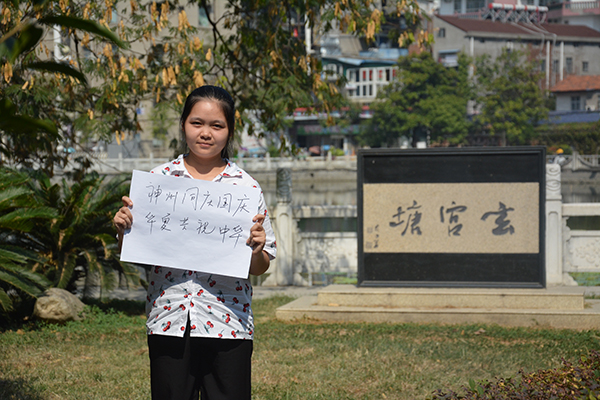 神州同庆国庆
华夏共祝中华
玄宫塘